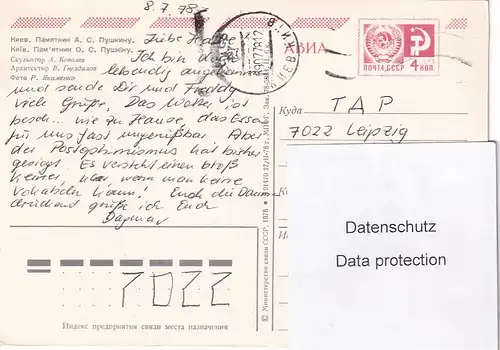 8.7.78
Киев. Памятник А. С. Пушкину.
Київ. Пам'ятник О. С. Пушкіну.
Скульптор А. Ковалев
Архитектор В. Гнездилов
Фото Р. Якименко
Liebe
Ich bin
lebendig angekommen
und sende Dir und Freddy
viele Grüße. Das Wetter ist
wie zu Hause, das Essen
für uns fast ungenießbar. Aber
der hat bisher
gesiegt. Es versteht einen bloß
keiner, wenn man keine
Vokabeln kann! Euch die Daumen
drückend grüße ich Euch
Dagmar
АВИА
ПОЧТА СССР 4 КОП.
Куда TAP
7022 Leipzig
Datenschutz
Data protection
© Министерство связи СССР, 1978
7022
Индекс предприятия связи места назначения